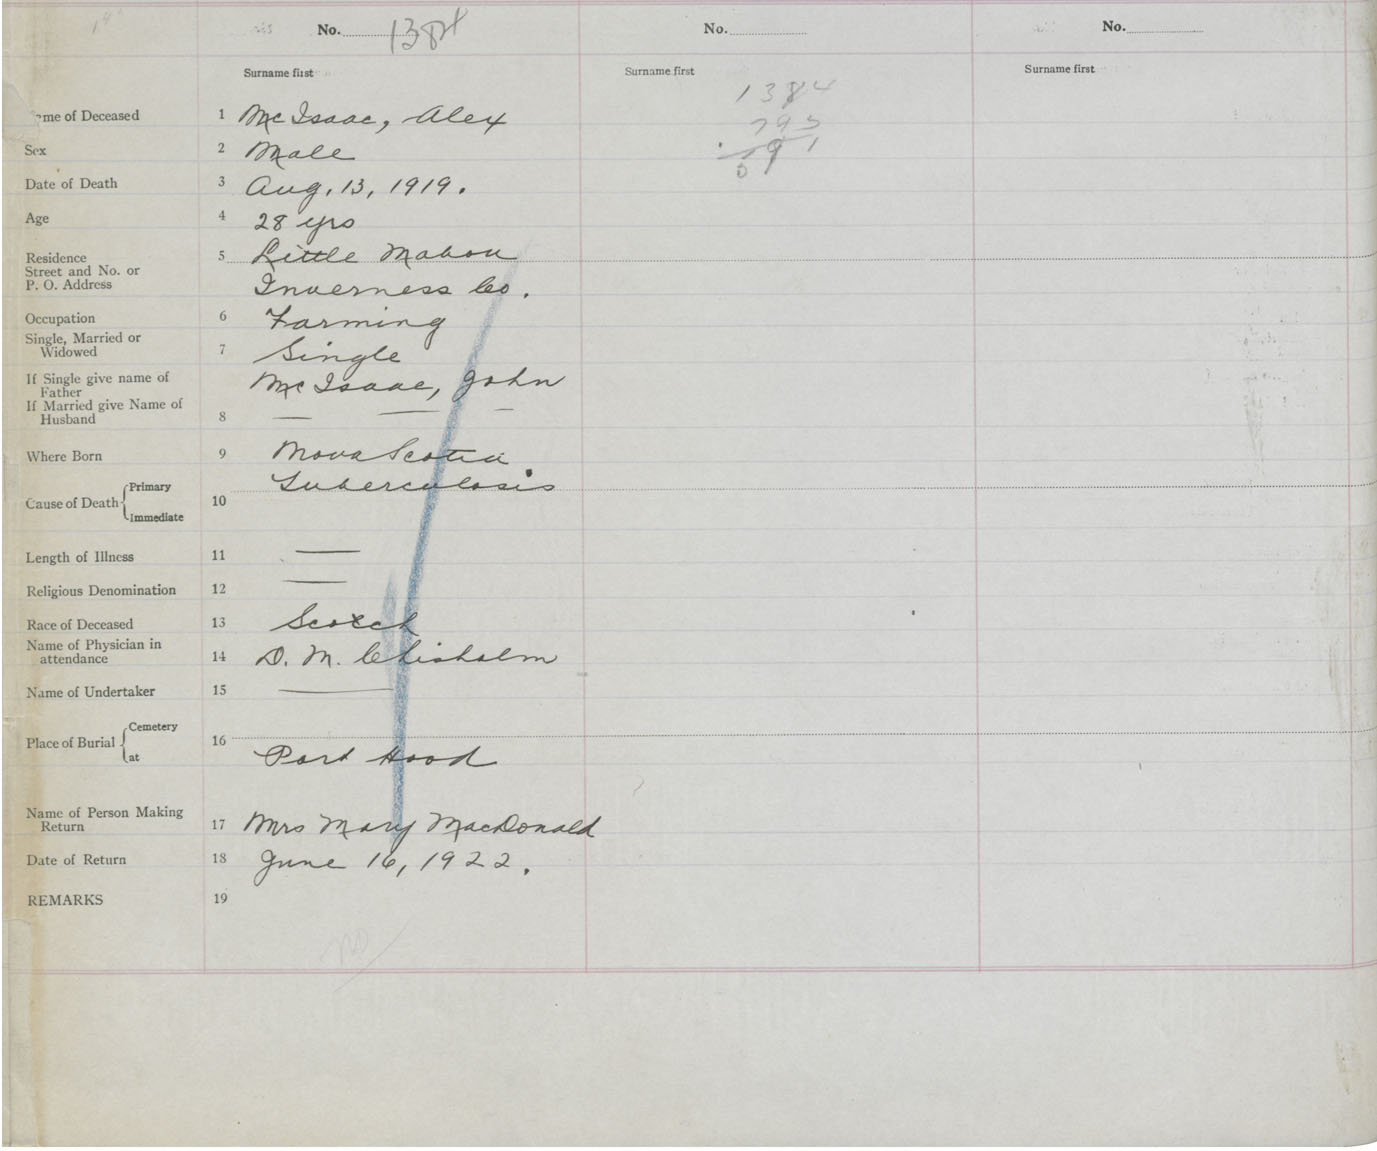 No. 1384
No.
No.
Surname first
Surname first
Surname first
1384
793
591
me of Deceased 1 McIsaac, Alex
Sex 2 Male
Date of Death 3 Aug. 13, 1919.
Age 4 28 yrs
Residence 5 Little Mabou
Street and No. or
P. O. Address Inverness Co.
Occupation 6 Farming
Single, Married or
Widowed 7 Single
If Single give name of McIsaac, John
Father
If Married give Name of
Husband 8 — — —
Where Born 9 Nova Scotia
Cause of Death { Primary Tuberculosis
10
Immediate
Length of Illness 11 —
Religious Denomination 12 —
Race of Deceased 13 Scotch
Name of Physician in
attendance 14 D. M. Chisholm
Name of Undertaker 15 —
Place of Burial { Cemetery 16
at Port Hood
Name of Person Making
Return 17 Mrs Mary MacDonald
Date of Return 18 June 16, 1922.
REMARKS 19